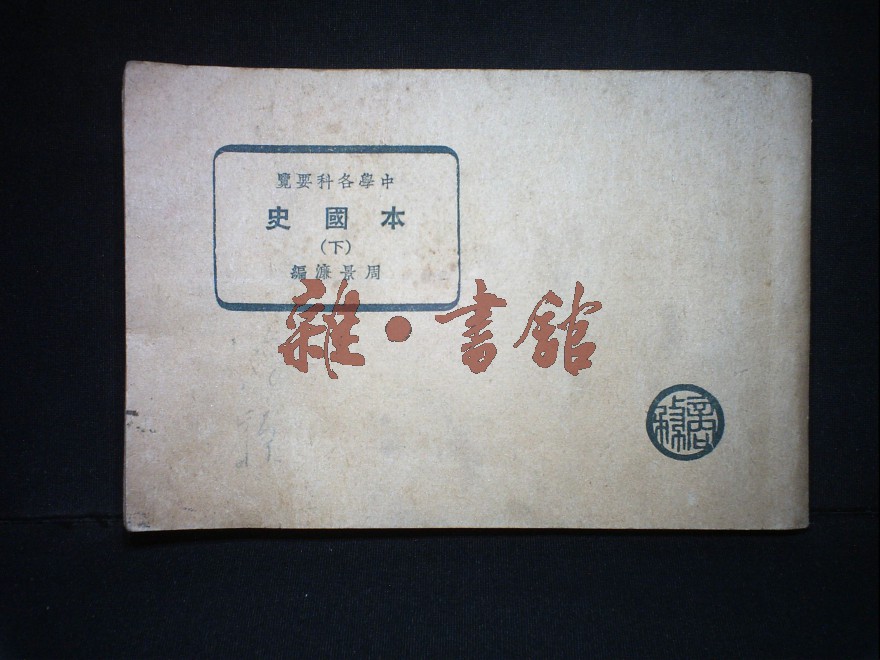 中學各科要覽
本國史
(下)
周景濂編
雜·書館
商務